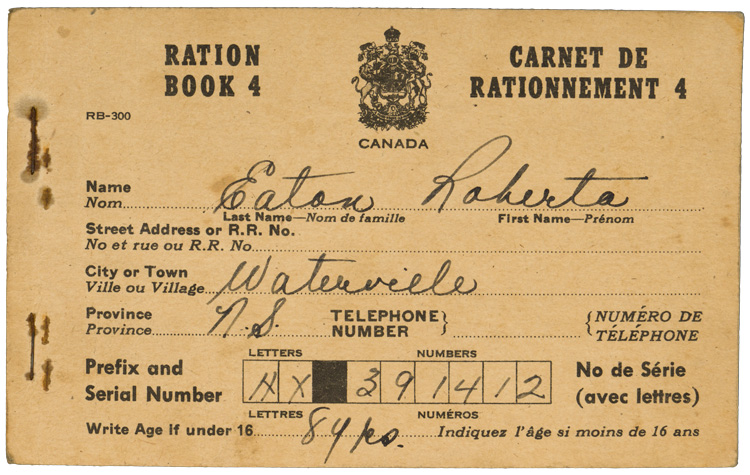 RATION BOOK 4
CARNET DE RATIONNEMENT 4
RB-300
CANADA
Name Eaton Roberta
Nom
Last Name—Nom de famille First Name—Prénom
Street Address or R.R. No.
No et rue ou R.R. No.
City or Town
Ville ou Village Waterville
Province
Province N.S. TELEPHONE NUMBER } { NUMÉRO DE TÉLÉPHONE
LETTERS NUMBERS
Prefix and Serial Number HX 391412 No de Série (avec lettres)
LETTRES NUMÉROS
Write Age if under 16 8 Indiquez l'âge si moins de 16 ans